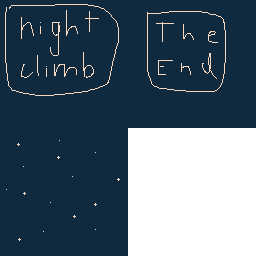 night
climb
The
End